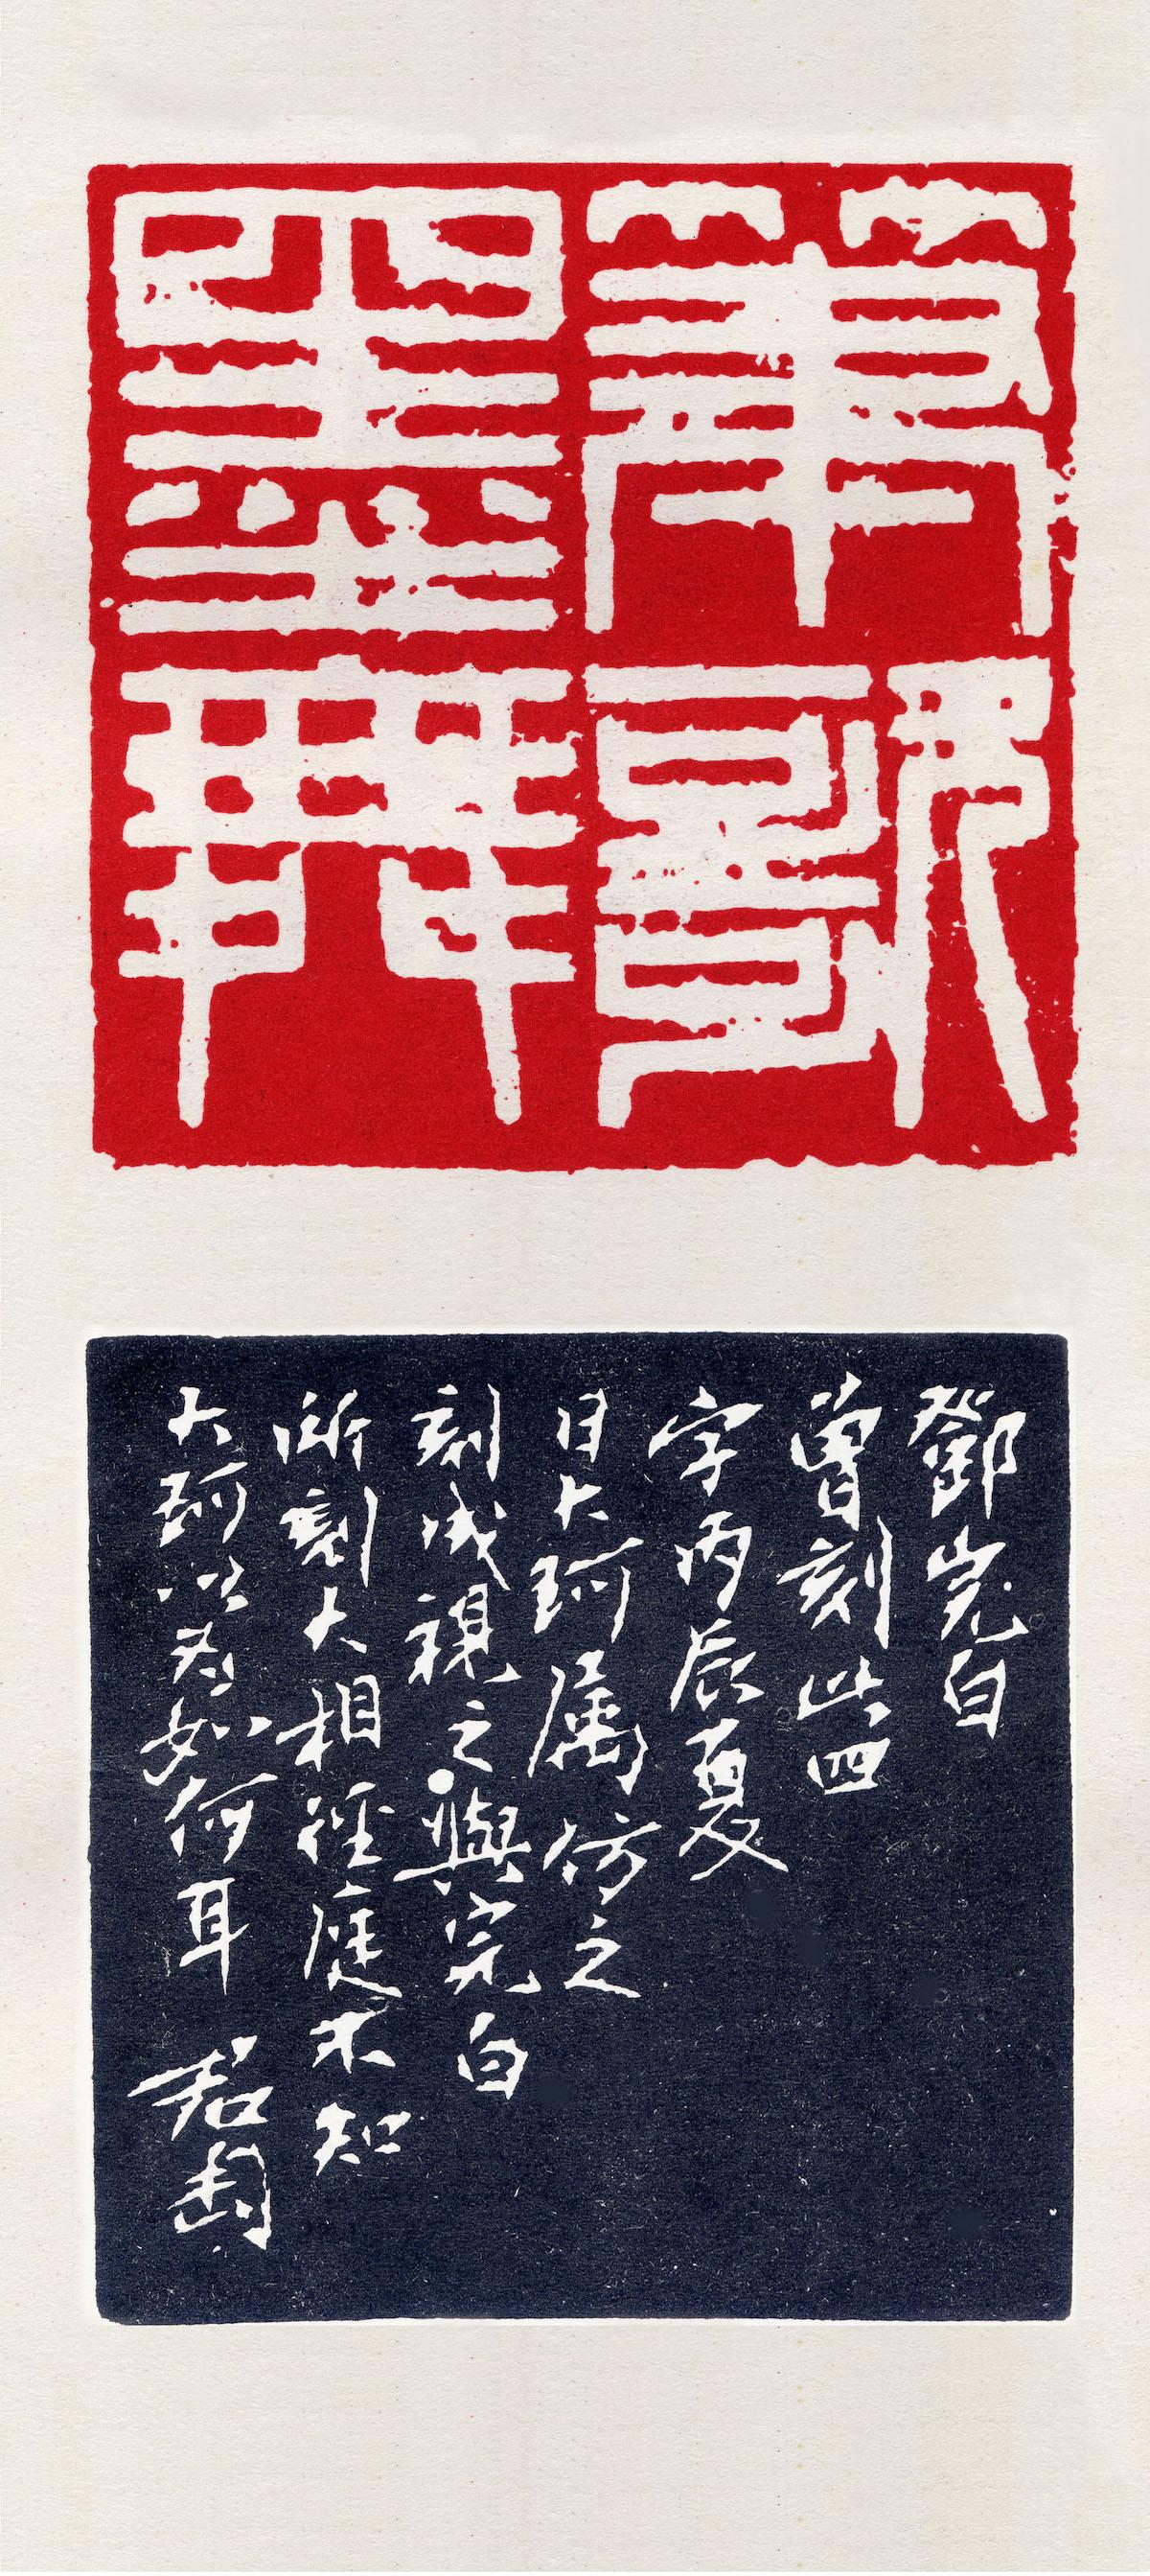 筆歌
墨舞
鄧完白
曾刻此四
字丙辰夏
日大珂属仿之
刻成視之與完白
所刻大相徑庭不知
大珂以为如何耳 君匋